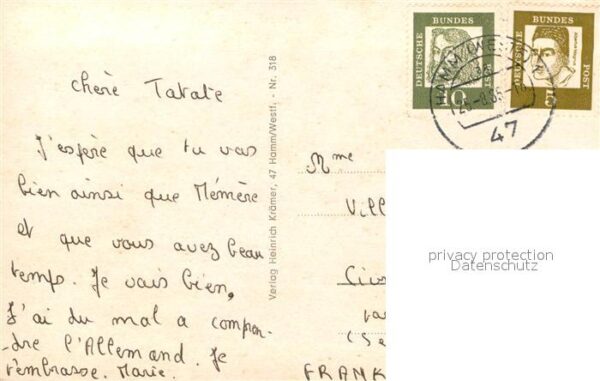 chère Tatate
J'espère que tu vas
bien ainsi que Mémère
et que vous avez beau
temps. Je vais bien,
J'ai du mal a compren-
dre l'Allemand. Je
t'embrasse. Marie.
Verlag Heinrich Krämer, 47 Hamm/Westf. - Nr. 318
DEUTSCHE BUNDESPOST
10
DEUTSCHE BUNDESPOST
15
HAMM (WESTF)
47
Mme
Vill
FRANK
privacy protection
Datenschutz